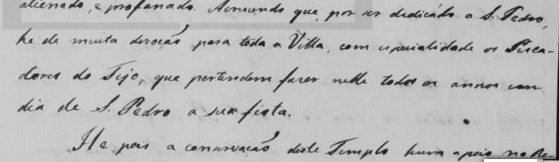 alienado, e profanado. Acrescendo que, por ser dedicado a S. Pedro,
he de muita devoção para toda a Villa, com especialidade os Pisca-
dores do Tejo, que pertendem fazer nelle todos os annos em
dia de S. Pedro a sua festa.
He pois a conservação deste Templo hum apoio